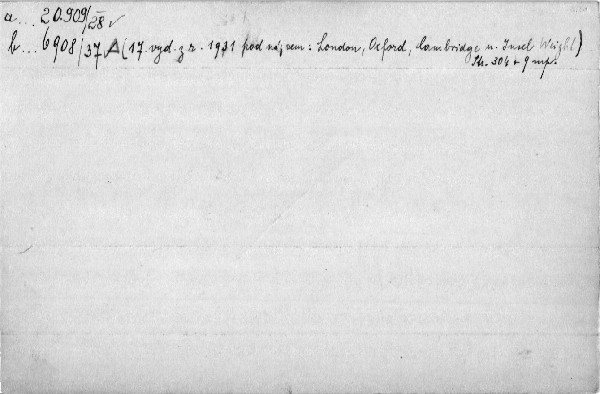 a... 20.909/28 ✓
b... 6908/37 A (17 vyd. z r. 1931 pod názvem: London, Oxford, Cambridge u. Insel Weight)
Str. 306 + 9 map.